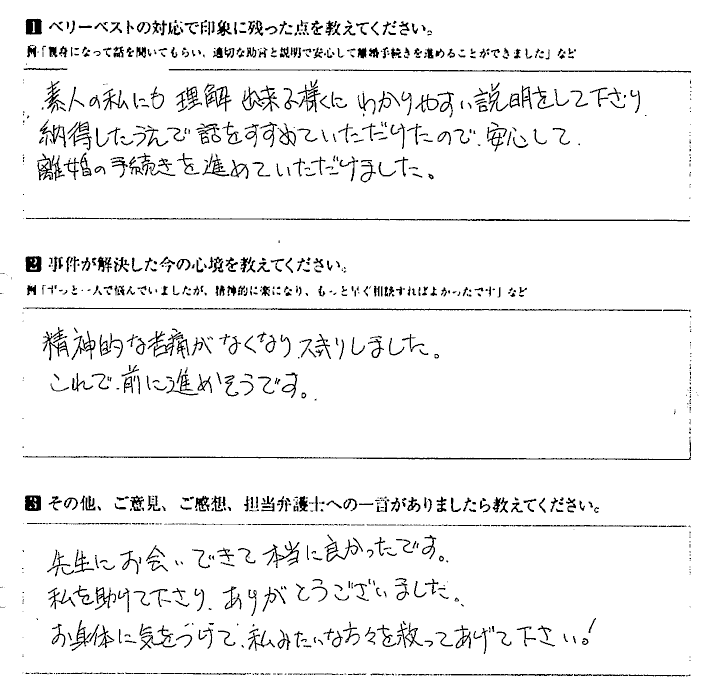 1 ベリーベストの対応で印象に残った点を教えてください。
例「親身になって話を聞いてもらい、適切な助言と説明で安心して離婚手続きを進めることができました」など
素人の私にも理解出来る様くにわかりやすい説明をして下さり
納得したうえで話をすすめていただけたので、安心して、
離婚の手続きを進めていただけました。
2 事件が解決した今の心境を教えてください。
例「ずっと一人で悩んでいましたが、精神的に楽になり、もっと早く相談すればよかったです」など
精神的な苦痛がなくなりスッキリしました。
これで、前に進めそうです。
3 その他、ご意見、ご感想、担当弁護士への一言がありましたら教えてください。
先生にお会いできて本当に良かったです。
私を助けて下さり、ありがとうございました。
お身体に気をつけて、私みたいな方々を救ってあげて下さい!